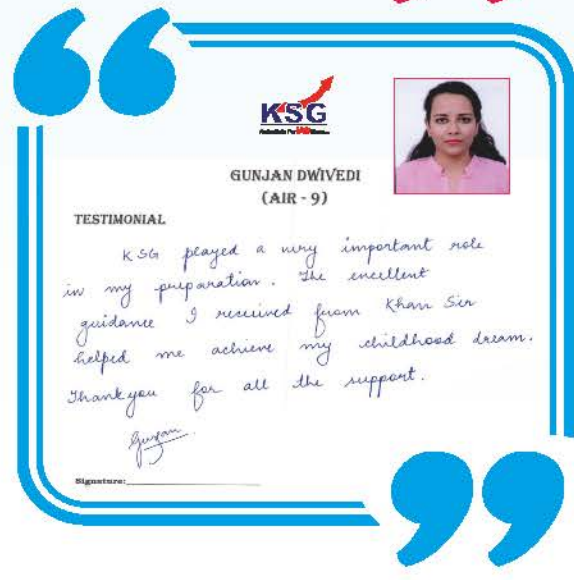 KSG
GUNJAN DWIVEDI
(AIR - 9)
TESTIMONIAL
KSG played a very important role
in my preparation. The excellent
guidance I received from Khan Sir
helped me achieve my childhood dream.
Thankyou for all the support.
Gunjan
Signature: